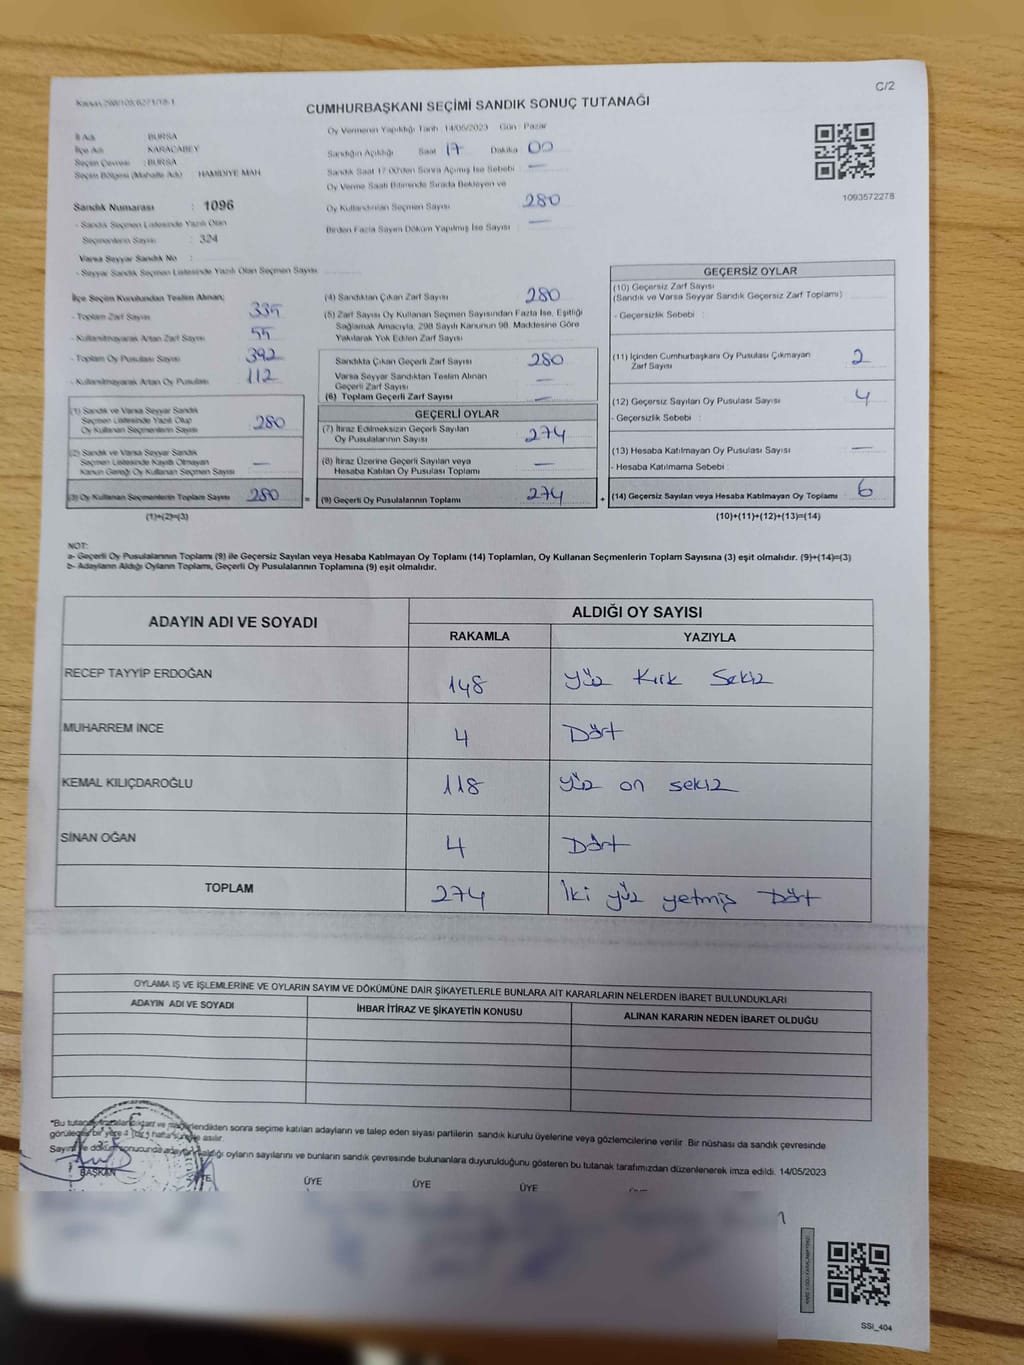 C/2
CUMHURBAŞKANI SEÇİMİ SANDIK SONUÇ TUTANAĞI
İl Adı : BURSA
İlçe Adı : KARACABEY
Seçim Çevresi : BURSA
Seçim Bölgesi (Mahalle Adı) : HAMİDİYE MAH
Sandık Numarası : 1096
- Sandık Seçmen Listesinde Yazılı Olan
Seçmenlerin Sayısı : 324
Varsa Seyyar Sandık No :
- Seyyar Sandık Seçmen Listesinde Yazılı Olan Seçmen Sayısı
Oy Vermenin Yapıldığı Tarih : 14/05/2023 Gün : Pazar
Sandığın Açıldığı Saat 17 Dakika 00
Sandık Saat 17:00'den Sonra Açılmış İse Sebebi : —
Oy Verme Saati Bitiminde Sırada Bekleyen ve
Oy Kullandırılan Seçmen Sayısı 280
Birden Fazla Sayım Döküm Yapılmış İse Sayısı —
1093572278
İlçe Seçim Kurulundan Teslim Alınan;
- Toplam Zarf Sayısı 335
- Kullanılmayarak Artan Zarf Sayısı 55
- Toplam Oy Pusulası Sayısı 392
- Kullanılmayarak Artan Oy Pusulası 112
(1) Sandık ve Varsa Seyyar Sandık
Seçmen Listesinde Yazılı Olup
Oy Kullanan Seçmenlerin Sayısı 280
(2) Sandık ve Varsa Seyyar Sandık
Seçmen Listesinde Kayıtlı Olmayan
Kanun Gereği Oy Kullanan Seçmen Sayısı —
(3) Oy Kullanan Seçmenlerin Toplam Sayısı 280 =
(1)+(2)=(3)
(4) Sandıktan Çıkan Zarf Sayısı 280
(5) Zarf Sayısı Oy Kullanan Seçmen Sayısından Fazla İse, Eşitliği
Sağlamak Amacıyla, 298 Sayılı Kanunun 98. Maddesine Göre
Yakılarak Yok Edilen Zarf Sayısı
Sandıkta Çıkan Geçerli Zarf Sayısı 280
Varsa Seyyar Sandıktan Teslim Alınan
Geçerli Zarf Sayısı —
(6) Toplam Geçerli Zarf Sayısı —
GEÇERLİ OYLAR
(7) İtiraz Edilmeksizin Geçerli Sayılan
Oy Pusulalarının Sayısı 274
(8) İtiraz Üzerine Geçerli Sayılan veya
Hesaba Katılan Oy Pusulası Toplamı —
(9) Geçerli Oy Pusulalarının Toplamı 274 +
GEÇERSİZ OYLAR
(10) Geçersiz Zarf Sayısı
(Sandık ve Varsa Seyyar Sandık Geçersiz Zarf Toplamı)
- Geçersizlik Sebebi :
(11) İçinden Cumhurbaşkanı Oy Pusulası Çıkmayan
Zarf Sayısı 2
(12) Geçersiz Sayılan Oy Pusulası Sayısı 4
- Geçersizlik Sebebi :
(13) Hesaba Katılmayan Oy Pusulası Sayısı —
- Hesaba Katılmama Sebebi :
(14) Geçersiz Sayılan veya Hesaba Katılmayan Oy Toplamı 6
(10)+(11)+(12)+(13)=(14)
NOT:
a- Geçerli Oy Pusulalarının Toplamı (9) ile Geçersiz Sayılan veya Hesaba Katılmayan Oy Toplamı (14) Toplamları, Oy Kullanan Seçmenlerin Toplam Sayısına (3) eşit olmalıdır. (9)+(14)=(3)
b- Adayların Aldığı Oyların Toplamı, Geçerli Oy Pusulalarının Toplamına (9) eşit olmalıdır.
ADAYIN ADI VE SOYADI
ALDIĞI OY SAYISI
RAKAMLA YAZIYLA
RECEP TAYYİP ERDOĞAN 148 Yüz Kırk Sekiz
MUHARREM İNCE 4 Dört
KEMAL KILIÇDAROĞLU 118 Yüz on sekiz
SİNAN OĞAN 4 Dört
TOPLAM 274 İki yüz yetmiş Dört
OYLAMA İŞ VE İŞLEMLERİNE VE OYLARIN SAYIM VE DÖKÜMÜNE DAİR ŞİKAYETLERLE BUNLARA AİT KARARLARIN NELERDEN İBARET BULUNDUKLARI
ADAYIN ADI VE SOYADI İHBAR İTİRAZ VE ŞİKAYETİN KONUSU ALINAN KARARIN NEDEN İBARET OLDUĞU
*Bu sonra seçime katılan adayların ve talep eden siyasi partilerin sandık kurulu üyelerine veya gözlemcilerine verilir. Bir nüshası da sandık çevresinde
asılır.
oyların sayılarını ve bunların sandık çevresinde bulunanlara duyurulduğunu gösteren bu tutanak tarafımızdan düzenlenerek imza edildi. 14/05/2023
BAŞKAN ÜYE ÜYE ÜYE
SSI_404